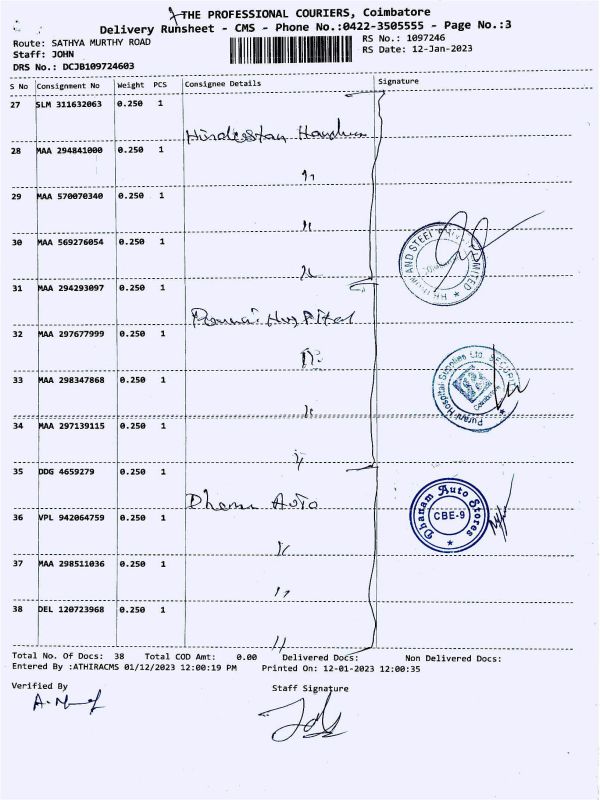 THE PROFESSIONAL COURIERS, Coimbatore
Delivery Runsheet - CMS - Phone No.:0422-3505555 - Page No.:3
Route: SATHYA MURTHY ROAD RS No.: 1097246
Staff: JOHN RS Date: 12-Jan-2023
DRS No.: DCJB109724603
S No Consignment No Weight PCS Consignee Details Signature
27 SLM 311632063 0.250 1
Hindustan
28 MAA 294841000 0.250 1
"
29 MAA 570070340 0.250 1
"
30 MAA 569276054 0.250 1
"
AND STEEL PRIVATE LIMITED
31 MAA 294293097 0.250 1
Hospital
32 MAA 297677999 0.250 1
"
33 MAA 298347868 0.250 1
"
Purani Hospital Supplies Ltd. SECURITY
Coimbatore
34 MAA 297139115 0.250 1
"
35 DDG 4659279 0.250 1
Auto
Dhanam Auto Stores
CBE-9
36 VPL 942064759 0.250 1
"
37 MAA 298511036 0.250 1
"
38 DEL 120723968 0.250 1
"
Total No. Of Docs: 38 Total COD Amt: 0.00 Delivered Docs: Non Delivered Docs:
Entered By :ATHIRACMS 01/12/2023 12:00:19 PM Printed On: 12-01-2023 12:00:35
Verified By Staff Signature